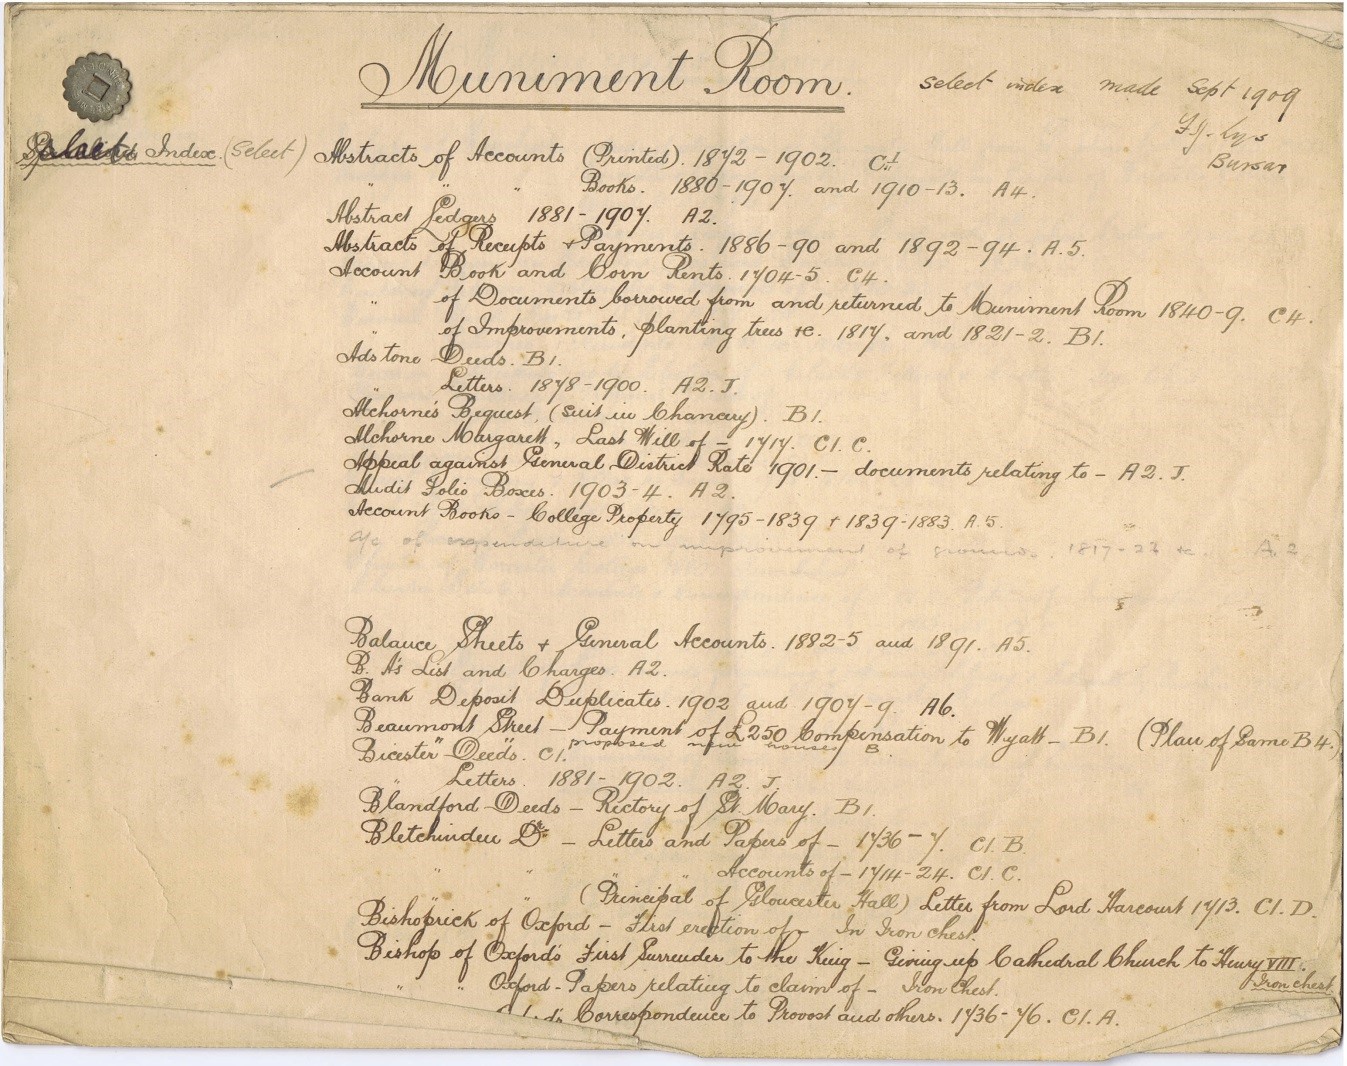 Muniment Room.
Select index made Sept 1909
F. J. Lys
Bursar
Index. (Select)
Abstracts of Accounts (Printed). 1872-1902. C1
" " " Books. 1880-1907. and 1910-13. A4.
Abstract Ledgers 1881-1907. A2.
Abstracts of Receipts + Payments. 1886-90 and 1892-94. A.5.
Account Book and Corn Rents. 1704-5. C4.
" of Documents borrowed from and returned to Muniment Room 1840-9. C4.
" of Improvements, planting trees &c. 1817, and 1821-2. B1.
Adstone Deeds. B1.
" Letters. 1878-1900. A2. J.
Alchorne's Bequest, (suit in Chancery). B1.
Alchorne Margarett, Last Will of - 1717. C1. C.
Appeal against General District Rate 1901. - documents relating to - A2. J.
Audit Folio Boxes. 1903-4. A2.
Account Books - College Property 1795-1839 + 1839-1883. A.5.
a/c of expenditure on improvement of grounds. 1817-23 &c. A.2
Balance Sheets + General Accounts. 1882-5 and 1891. A5.
B. A's List and Charges. A2.
Bank Deposit Duplicates. 1902 and 1907-9. A6.
Beaumont Street - Payment of £250 Compensation to Wyatt - B1. (Plan of Same B4.)
" " proposed new houses B.
Bicester Deeds. C1.
" Letters. 1881-1902. A2. J.
Blandford Deeds - Rectory of St. Mary. B1.
Bletchinden Dr. - Letters and Papers of - 1736-7. C1. B.
" " " " Accounts of - 1714-24. C1. C.
" " (Principal of Gloucester Hall) Letter from Lord Harcourt 1713. C1. D.
Bishoprick of Oxford - First erection of - In Iron chest.
Bishop of Oxford's First Surrender to the King - Giving up Cathedral Church to Henry VIII.
Iron chest
" " Oxford - Papers relating to claim of - Iron Chest.
Correspondence to Provost and others. 1736-76. C1. A.